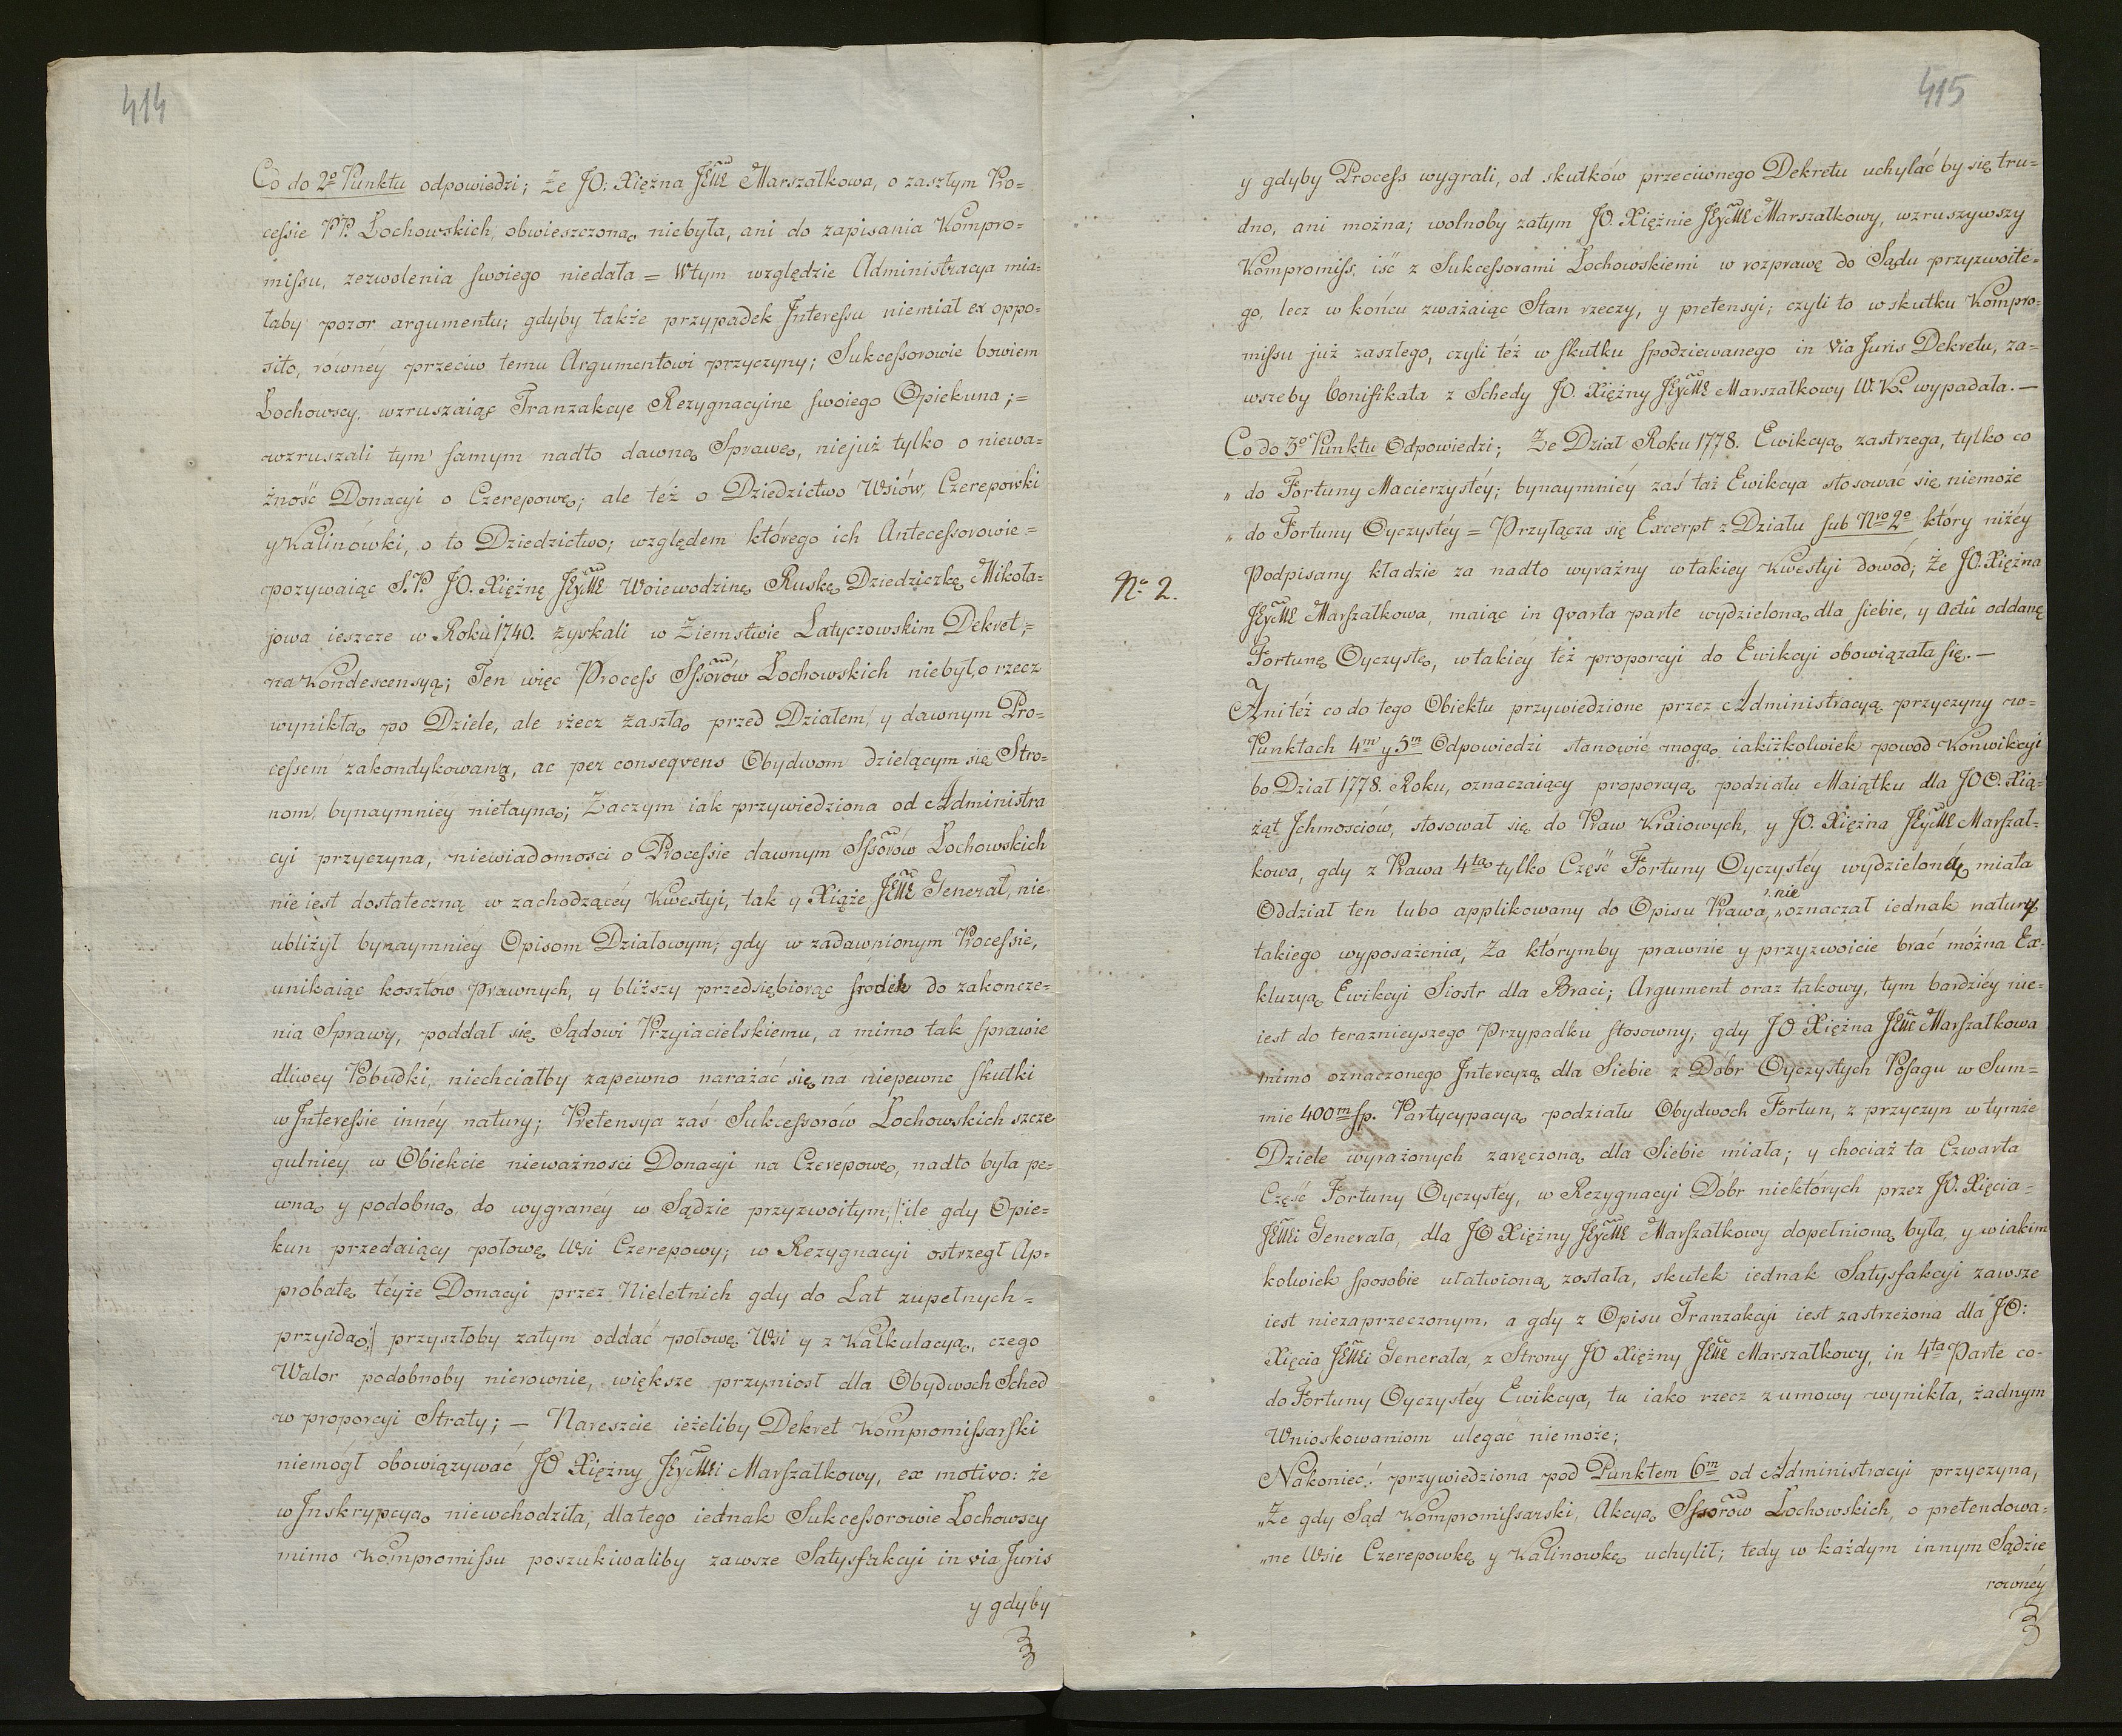 414
Co do 2º Punktu odpowiedzi; Że JO. Xiężna JEMC Marszałkowa, o zaszłym Pro-
cessie PP. Łochowskich, obwieszczoną niebyła, ani do zapisania Kompro-
missu, zezwolenia swoiego niedała = Wtym względzie Administracya mia-
łaby pozor argumentu; gdyby także przypadek Interessu niemiał ex oppo-
sito, równéy przeciw temu Argumentowi przyczyny; Sukcessorowie bowiem
Łochowscy, wzruszaiąc Tranzakcye Rezygnacyine swoiego Opiekuna; =
wzruszali tym samym nadto dawną Sprawę, niejuż tylko o niewa-
żność Donacyi o Czerepowę; ale též o Dziedzictwo Wsiów, Czerepowki
y Kalinówki, o to Dziedzictwo; względem którego ich Antecessorowie =
pozywaiąc S.P. JO. Xiężnę JEyMC Woiewodzinę Ruskę, Dziedziczkę Mikoła-
jowa ieszcze w Roku 1740. zyskali w Ziemstwie Latyczowskim Dekret, =
na Kondescensyą; Ten więc Process Sssorów Łochowskich niebył, o rzecz
wynikłą po Dziele, ale rzecz zaszłą przed Działem, y dawnym Pro-
cessem zakondykowaną, ac per conseqvens Obydwom dzielącym się Stro-
nom, bynaymniey nietayną; Zaczym iak przywiedziona od Administra
cyi przyczyna, niewiadomosci o Processie dawnym Sssorów Łochowskich
nie iest dostateczną w zachodzącéy Kwestyi, tak y Xiąże JEMC Generał, nie-
ubliżył bynaymniéy Opisom Działowym; gdy w zadawnionym Processie,
unikaiąc kosztów Prawnych, y bliższy przedsiębiorąc srodek do zakoncze-
nia Sprawy, poddał się Sądowi Przyiacielskiemu, a mimo tak sprawie
dliwey Pobudki, niechciałby zapewno narażać się na niepewne skutki
w Interessie innéy natury; Pretensya zaś Sukcessorów Łochowskich szcze
gulniey w Obiekcie nieważnosci Donacyi na Czerepowę, nadto była pe-
wną y podobną do wygranéy w Sądzie przyzwoitym; /: ile gdy Opie-
kun przedaiący połowę Wsi Czerepowy; w Rezygnacyi ostrzegł Ap-
probatę téyże Donacyi przez Nieletnich gdy do Lat zupełnych =
przyidą :/ przyszłoby zatym oddać połowę Wsi y z Kalkulacyą, czego
Walor podobnoby nierownie, większe przyniosł dla Obydwoch Sched
w proporcyi Straty; — Nareszcie ieżeliby Dekret Kompromissarski
niemógł obowiązywać JO Xiężny JEyMCi Marszałkowy, ex motivo: że
w Inskrypcyą niewchodziła; dlatego iednak Sukcessorowie Łochowscy
mimo Kompromissu poszukiwaliby zawsze Satysfakcyi in via Juris
y gdyby
415
y gdyby Process wygrali, od skutków przeciwnego Dekretu uchylać by się tru-
dno, ani można; wolnoby zatym JO. Xiężnie JEyMC Marszałkowy, wzruszywszy
Kompromiss, iść z Sukcessorami Łochowskiemi w rozprawę do Sądu przyzwoite-
go, lecz w końcu zważaiąc Stan rzeczy, y pretensyi; czyli to w skutku Kompro-
missu już zaszłego, czyli też w skutku spodziewanego in via Juris Dekretu, za-
wszeby bonifikata z Schedy JO. Xiężny JEyMC Marszałkowy W. K. wypadała. —
Co do 3º Punktu Odpowiedzi; Ze Dział Roku 1778. Ewikcyą zastrzega, tylko co
„ do Fortuny Macierzystéy; bynaymniéy zaś taż Ewikcya stosować się niemoże
„ do Fortuny Oyczystéy = Przyłącza się Excerpt z Działu sub Nro 2º który niżéy
Nº 2.
Podpisany kładzie za nadto wyraźny w takiey Kwestyi dowod; Że JO. Xiężna
JEyMC Marszałkowa, maiąc in qvarta parte wydzieloną dla siebie, y actû oddaną
Fortunę Oyczystą, w takiéy też proporcyi do Ewikcyi obowiązała się. —
Ani też co do tego Obiektu przywiedzione przez Administracyą przyczyny w-
Punktach 4m y 5m Odpowiedzi stanowić mogą iakiżkolwiek powod Konwikcyi
bo Dział 1778. Roku, oznaczaiący proporcyą podziału Maiątku dla JOO. Xią-
żąt Ichmosciów, stosował się do Praw Kraiowych, y JO. Xiężna JEyMC Marszał-
kowa, gdy z Prawa 4tą tylko Część Fortuny Oyczystéy wydzieloną miała
Oddział ten lubo applikowany do Opisu Prawa, nie oznaczał iednak natury
takiego wyposażenia, Za którymby prawnie y przyzwoicie brać można Ex-
kluzyą Ewikcyi Siostr dla Braci; Argument oraz takowy, tym bardziéy nie-
iest do teraznieyszego Przypadku stosowny; gdy JO Xiężna JEMC Marszałkowa
mimo oznaczonego Intercyzą dla Siebie z Dobr Oyczystych Posagu w Sum-
mie 400m fp. Partycypacyą podziału Obydwoch Fortun, z przyczyn w tymże
Dziele wyrażonych zaręczoną dla Siebie miała; y chociaż ta Czwarta
Część Fortuny Oyczystéy, w Rezygnacyi Dóbr niektórych przez JO. Xięcia =
JEMCi Generała, dla JO Xiężny JEyMC Marszałkowy dopełnioną była, y w iakim
kolwiek sposobie ułatwioną została, skutek iednak Satysfakcyi zawsze
iest niezaprzeczonym, a gdy z Opisu Tranzakcyi iest zastrzeżona dla JO:
Xięcia JEMCi Generała, z Strony JO Xiężny JEMC Marszałkowy, in 4ta Parte co-
do Fortuny Oyczystéy Ewikcya, tu iako rzecz z umowy wynikła, żadnym
Wnioskowaniom ulegać niemoże;
Nakoniec! przywiedziona pod Punktem 6m od Administracyi przyczyna,
„Że gdy Sąd Kompromissarski, Akcyą Sssorów Łochowskich, o pretendowa-
„ne Wsie Czerepowkę y Kalinowkę uchylił; tedy w każdym innym Sądzie
rownéy